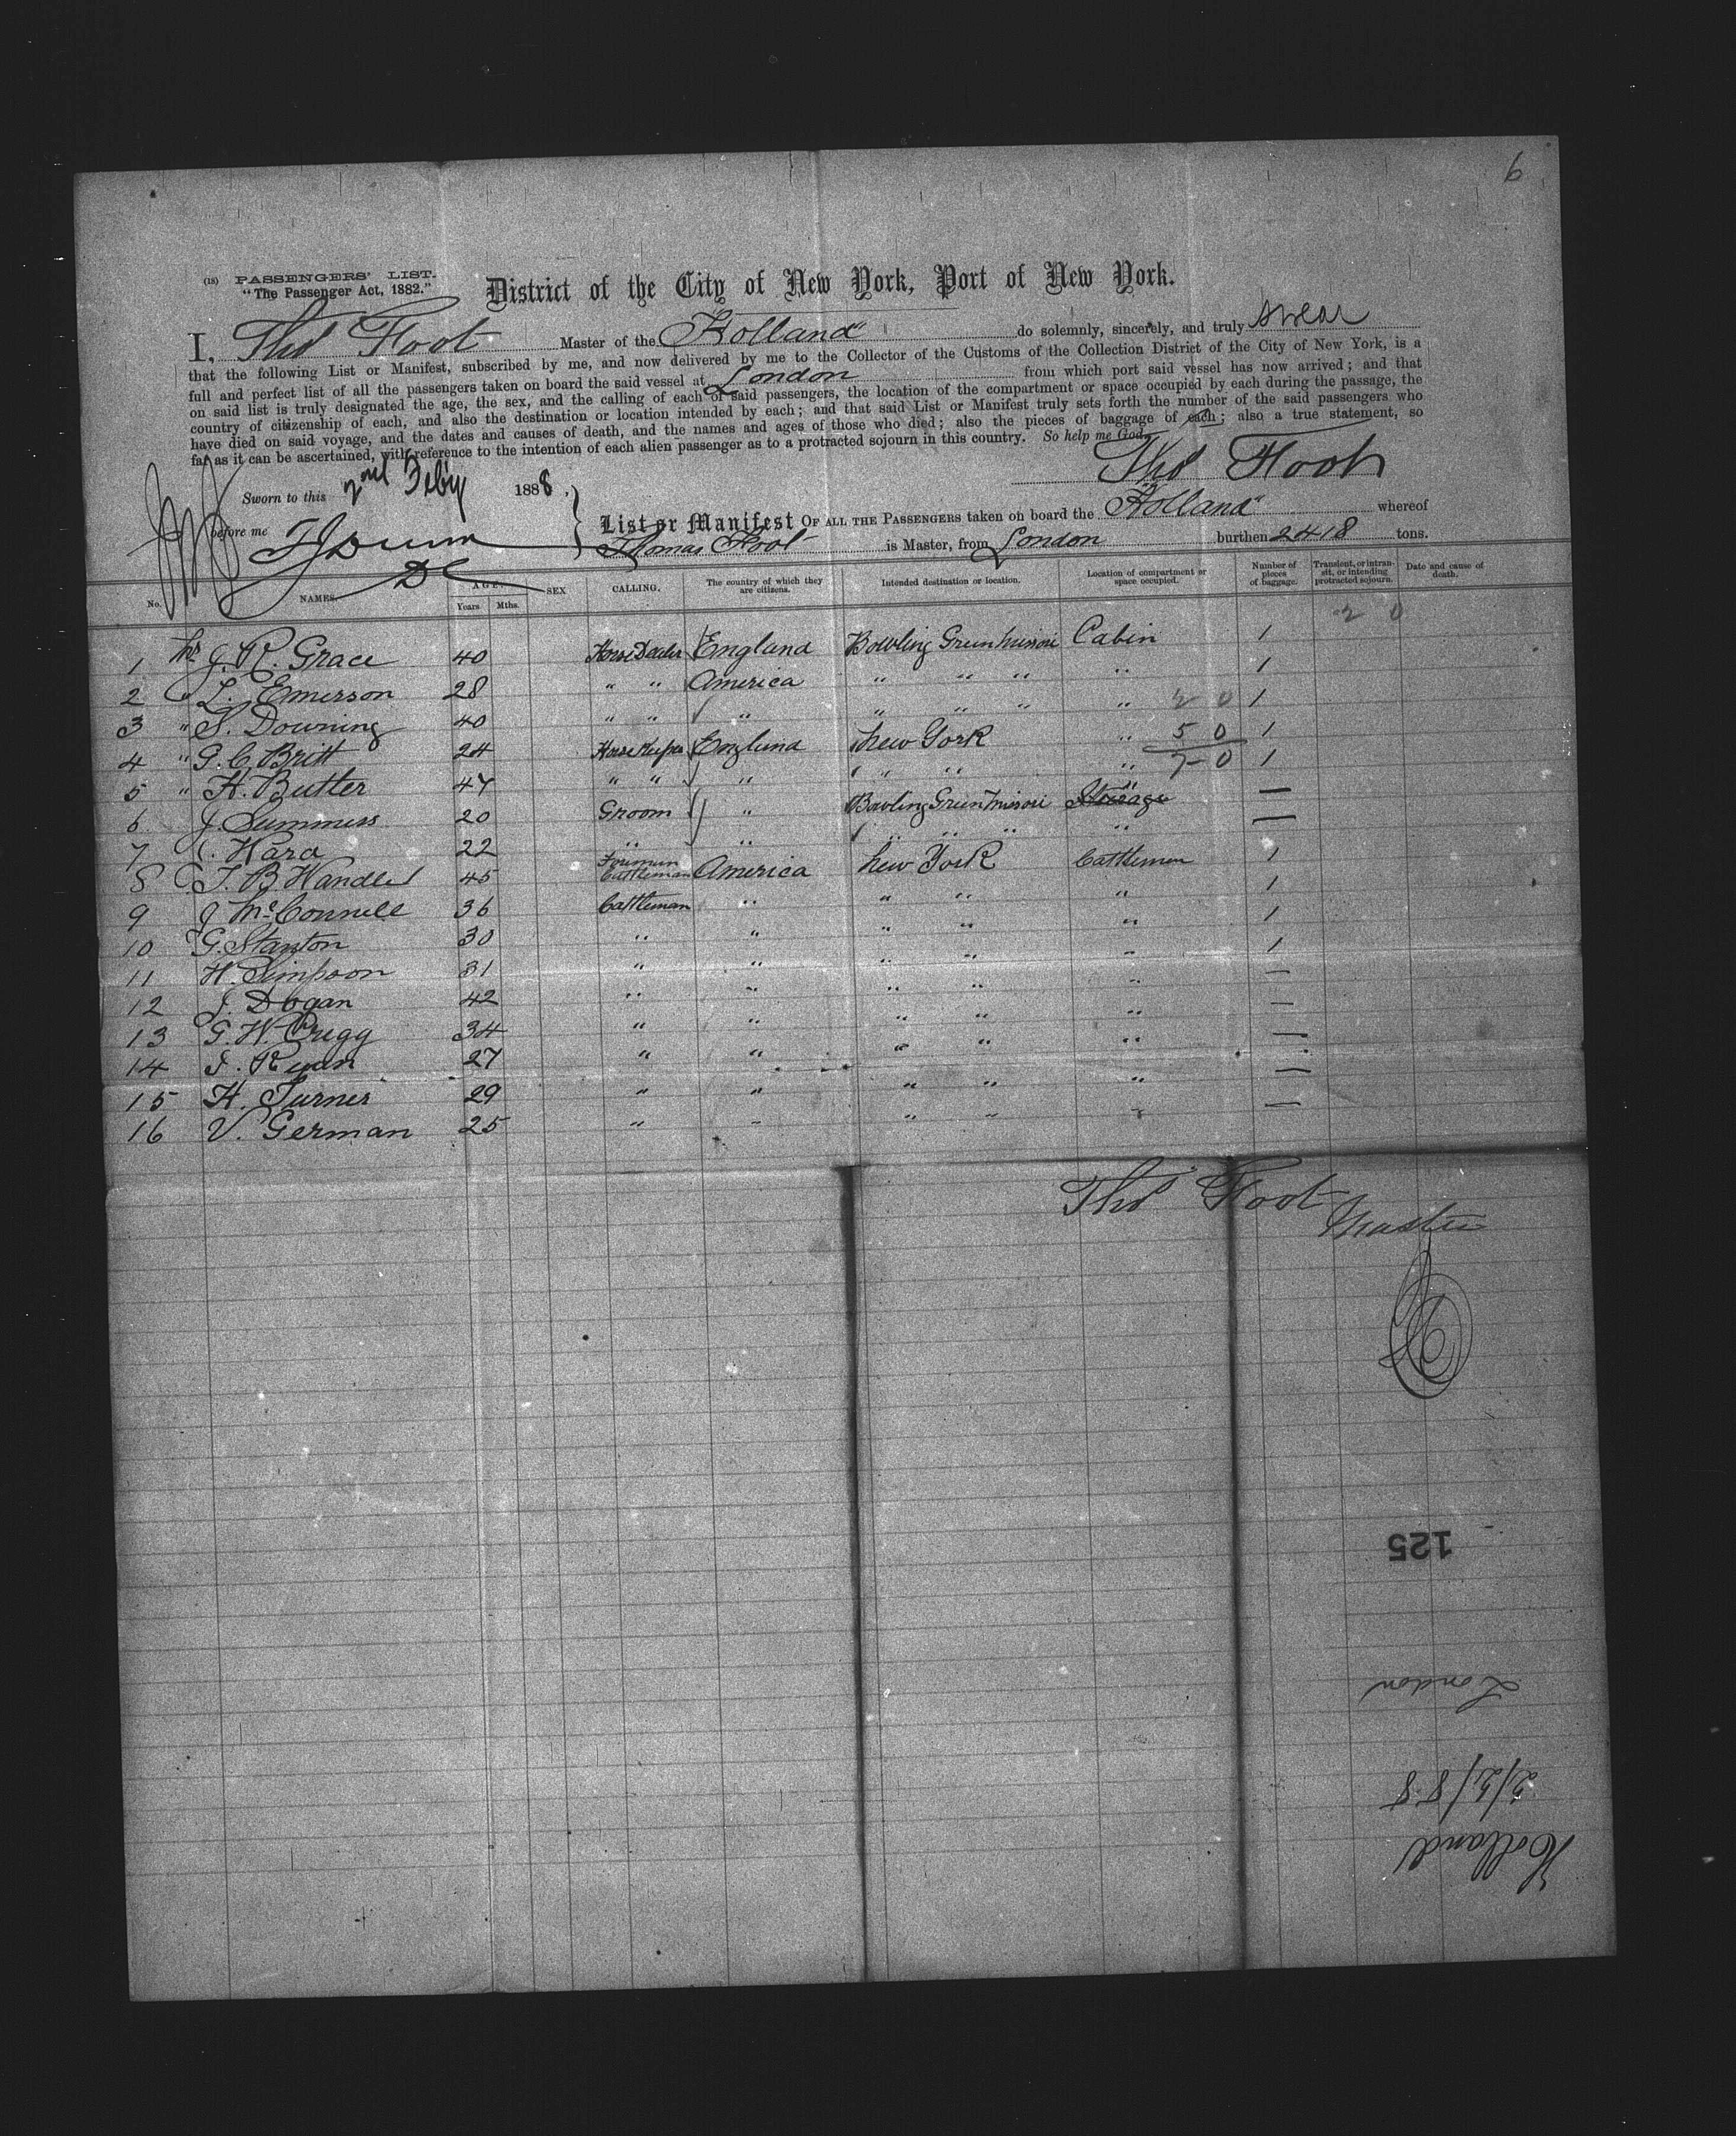 6
(18) PASSENGERS' LIST.
"The Passenger Act, 1882."
District of the City of New York, Port of New York.
I, Thos Foot Master of the "Holland" do solemnly, sincerely, and truly swear
that the following List or Manifest, subscribed by me, and now delivered by me to the Collector of the Customs of the Collection District of the City of New York, is a
full and perfect list of all the passengers taken on board the said vessel at London from which port said vessel has now arrived; and that
on said list is truly designated the age, the sex, and the calling of each of said passengers, the location of the compartment or space occupied by each during the passage, the
country of citizenship of each, and also the destination or location intended by each; and that said List or Manifest truly sets forth the number of the said passengers who
have died on said voyage, and the dates and causes of death, and the names and ages of those who died; also the pieces of baggage of each; also a true statement, so
far as it can be ascertained, with reference to the intention of each alien passenger as to a protracted sojourn in this country. So help me God.
Thos Foot
Sworn to this 2nd Feby 1888.
before me
DC
List or Manifest OF ALL THE PASSENGERS taken on board the "Holland" whereof
Thomas Foot is Master, from London burthen 2418 tons.
No. NAMES. AGE. Years Mths. SEX CALLING. The country of which they are citizens. Intended destination or location. Location of compartment or space occupied. Number of pieces of baggage. Transient, or in transit, or intending protracted sojourn. Date and cause of death.
2 0
1 Mr J. R. Grace 40 Horse Dealer England Bowling Green Missori Cabin 1
2 " L. Emerson 28 " " America " " " " 1
3 " S. Downing 40 " " " " " " " 2 0 1
4 " G. C. Britt 24 Horse Keeper England New York " 5 0 1
5 " H. Butler 47 " " " " " " 7 0 1
6 J. Summers 20 Groom " Bowling Green Missori Steerage —
7 C. Hard 22 " " " " " " —
8 T. B. Handle 45 Foreman Cattleman America New York Cattlemen 1
9 J McConnell 36 Cattleman " " " " 1
10 G. Stanton 30 " " " " " 1
11 H. Simpson 31 " " " " " 1
12 J. Dogan 42 " " " " " —
13 G. W. Cregg 34 " " " " " —
14 J. Ryan 27 " " " " " —
15 H. Turner 29 " " " " " —
16 V. German 25 " " " " " —
Thos Foot
Master
125
London
2/2/88
Holland